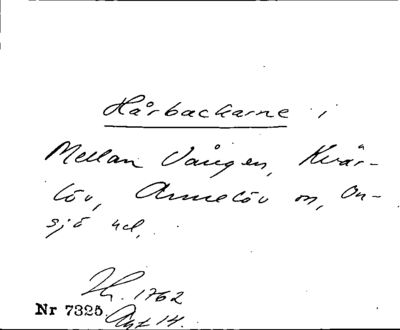 Hårbackarne i
Mellan Vången, Kvär-
löv, Annelöv sn, On-
sjö hd.
Lh. 1762
Nr 7325. Akt 14.